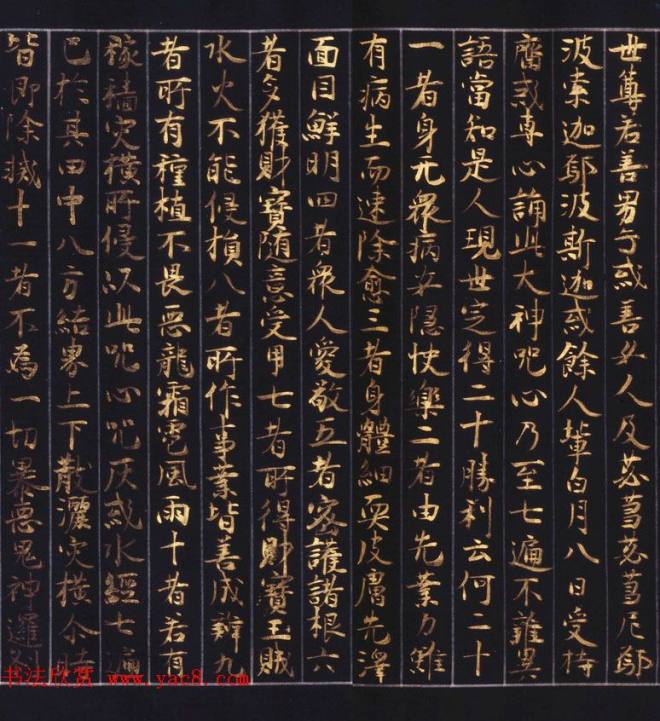 世尊若善男子或善女人及苾蒭苾蒭尼鄔
波索迦鄔波斯迦或餘人輩白月八日受持
齋戒專心誦此大神咒心乃至七遍不雜異
語當知是人現世定得二十勝利云何二十
一者身无眾病安隱快樂二者由先業力雖
有病生而速除愈三者身體細耎皮膚光澤
面目鮮明四者眾人愛敬五者密護諸根六
者多獲財寶隨意受用七者所得財寶王賊
水火不能侵損八者所作事業皆善成辦九
者所有種植不畏惡龍霜雹風雨十者若有
稼穡災橫所侵以此咒心咒灰或水經七遍
已於其田中八方結界上下散灑災橫尒時
皆即除滅十一者不為一切暴惡鬼神邏
书法欣赏 www.yac8.com